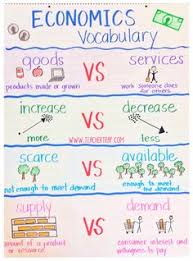 ECONOMICS
Vocabulary
goods VS services
products made or grown
work someone does
for others
increase VS decrease
more
less
WWW.TEACHERTRAP.COM
scarce VS available
not enough to meet demand
enough to meet the
demand
supply VS demand
amount of a product
or resource
consumer interest and
willingness to pay